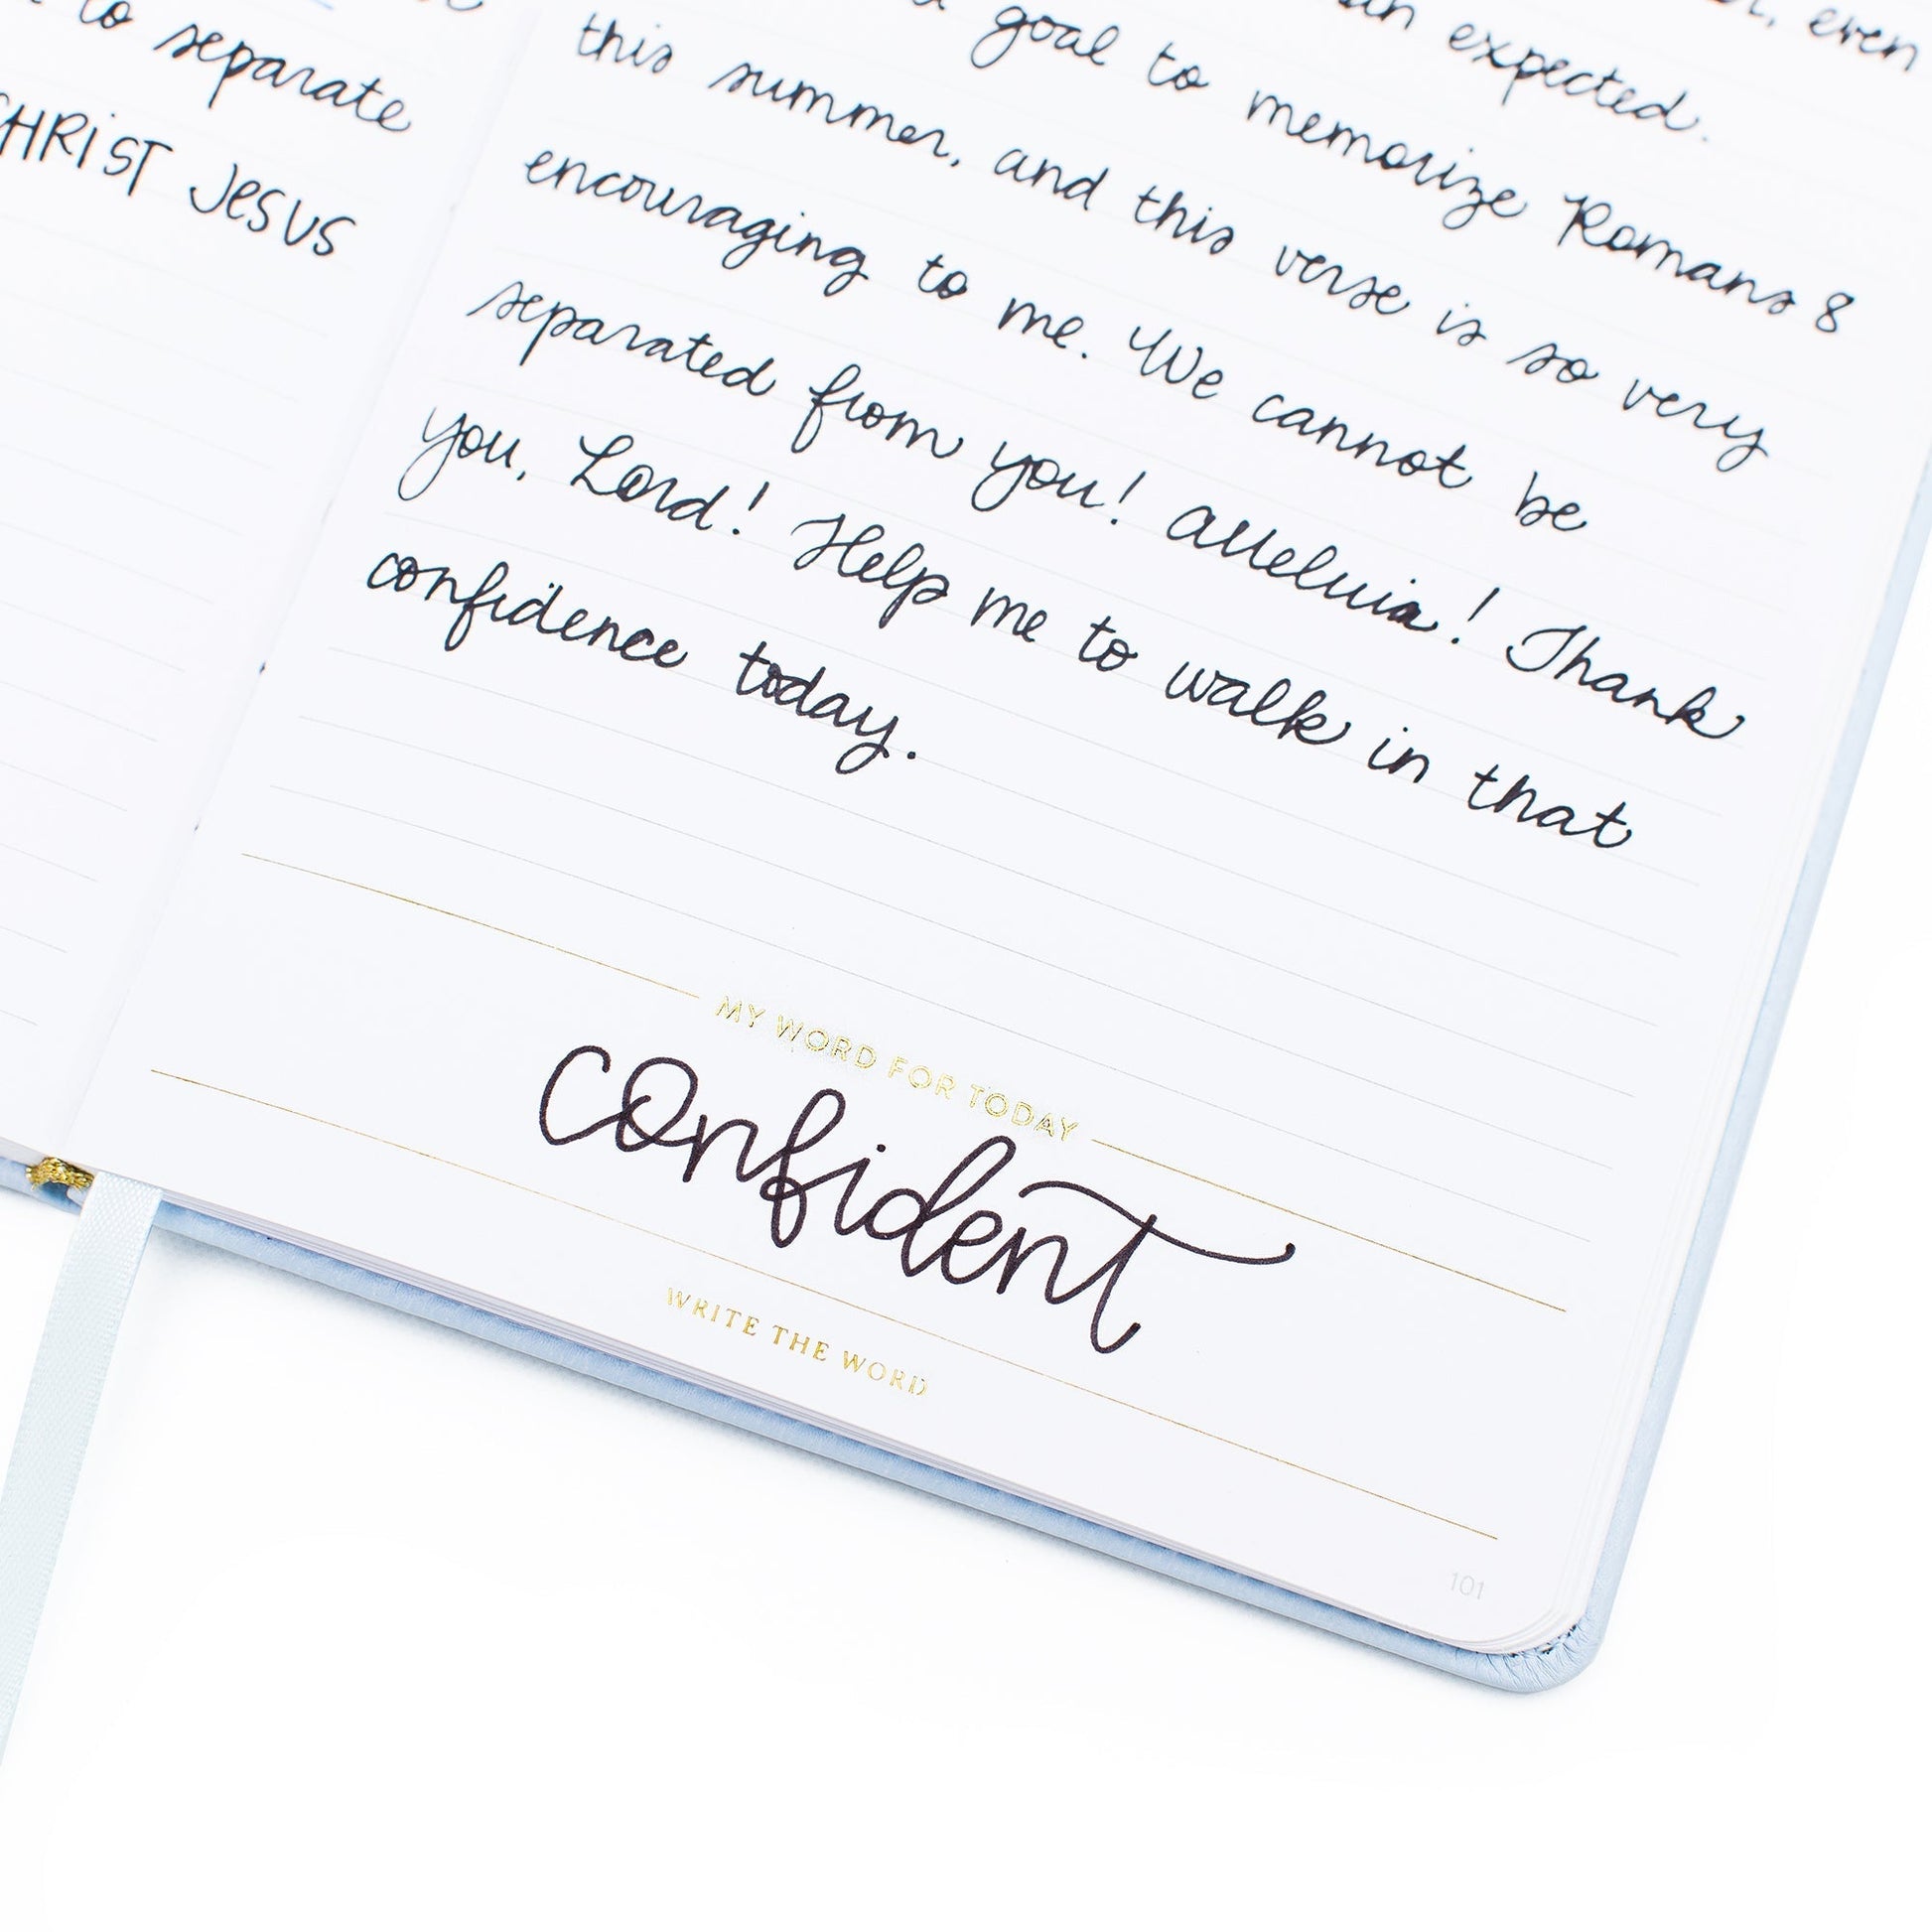 to separate
CHRIST JESUS
even
expected.
goal to memorize Romans 8
this summer, and this verse is so very
encouraging to me. We cannot be
separated from you! alleluia! Thank
you, Lord! Help me to walk in that
confidence today.
MY WORD FOR TODAY
confident
WRITE THE WORD
101